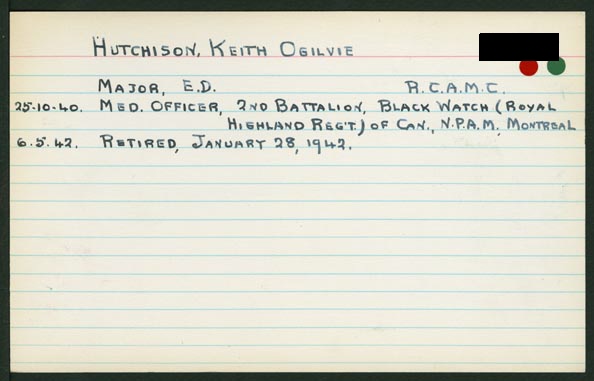 HUTCHISON, KEITH OGILVIE
MAJOR, E.D. R.C.A.M.C.
25-10-40. MED. OFFICER, 2ND BATTALION, BLACK WATCH (ROYAL
HIGHLAND REG'T.) OF CAN., N.P.A.M. MONTREAL
6.5.42. RETIRED, JANUARY 28, 1942.